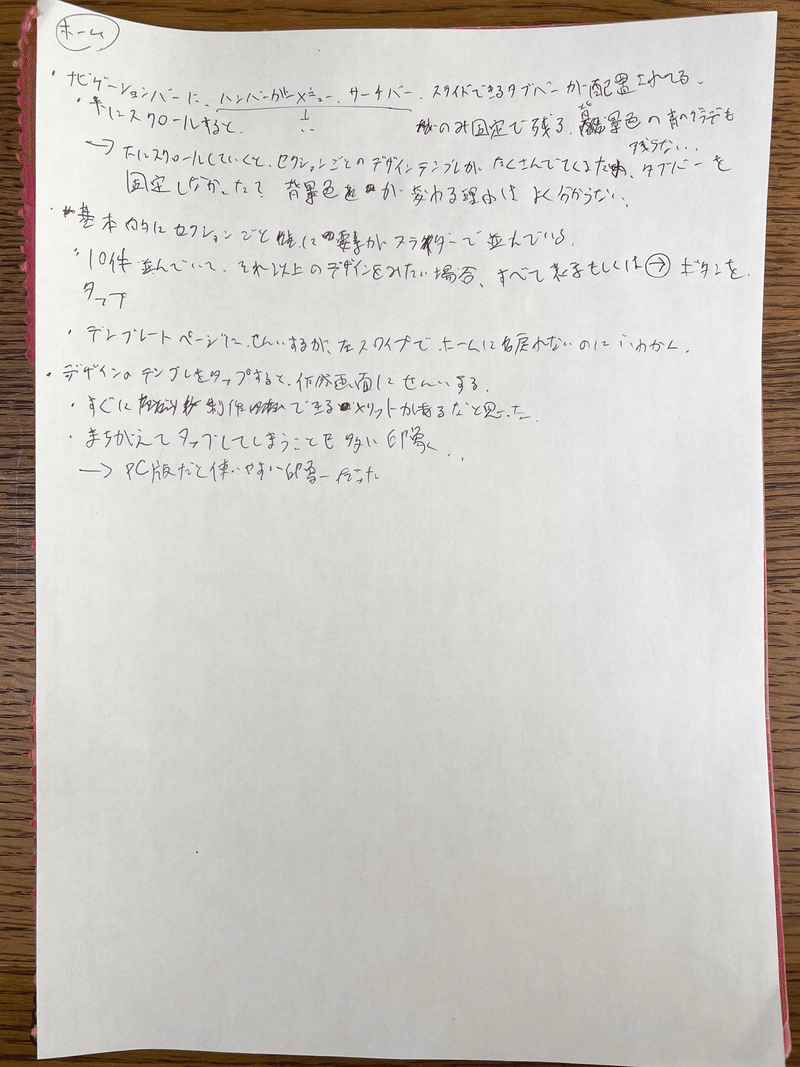 ホーム
・ナビゲーションバーに、ハンバーガーメニュー、サーチバー、スライドできるタブバーが配置されてる。
・下にスクロールすると、 のみ固定で残る。背景色の青グラデも
↓ 残らない..
→ 下にスクロールしていくと、セクションごとのデザインテンプレが、たくさんでてくるため、タブバーを
固定しなかった? 背景色が変わる理由はよく分からない。
・基本的にセクションごとに要素がスライダーで並んでいる。
・10件並んでいて、それ以上のデザインをみたい場合、すべて表示もしくは→ボタンを
タップ
・テンプレートページに、せんいするが、左スワイプでホームに戻れないのにいわかん。
・デザインのテンプレをタップすると、作成画面にせんいする。
・すぐに制作できるメリットがあるなと思った。
・まちがえてタップしてしまうことも多い印象..
→ PC版だと使いやすい印象だった